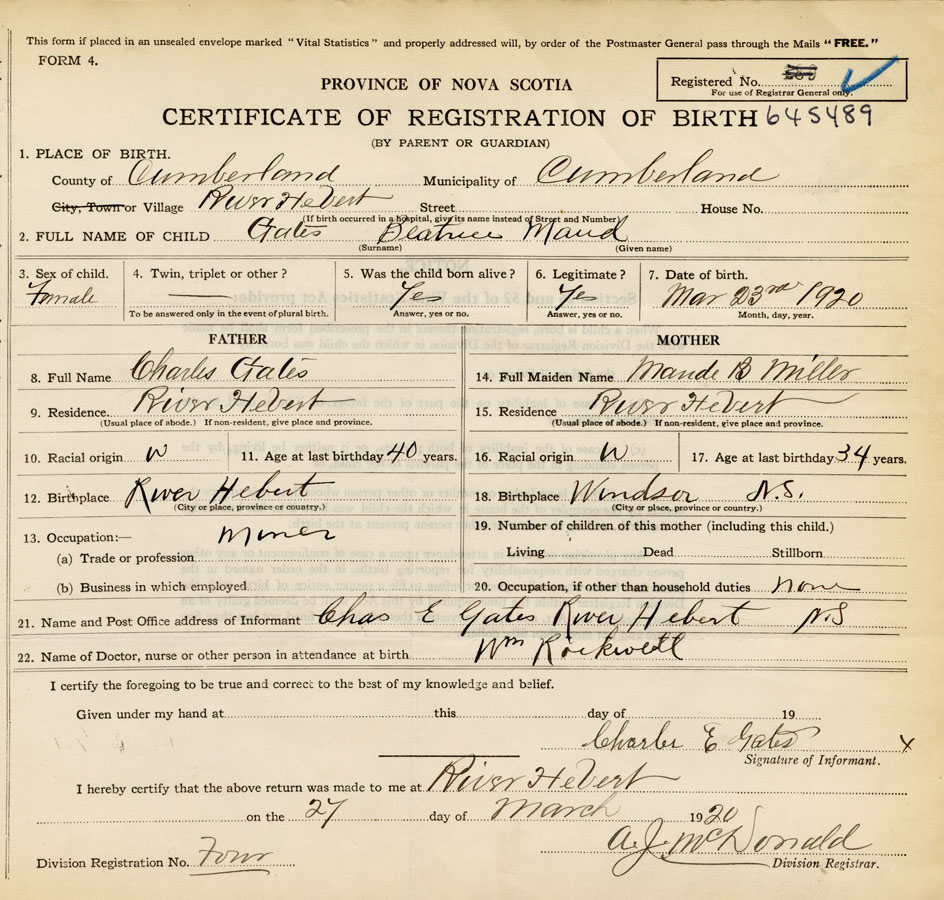 This form if placed in an unsealed envelope marked "Vital Statistics" and properly addressed will, by order of the Postmaster General pass through the Mails "FREE."
FORM 4.
PROVINCE OF NOVA SCOTIA
Registered No.
For use of Registrar General only.
CERTIFICATE OF REGISTRATION OF BIRTH 645489
(BY PARENT OR GUARDIAN)
1. PLACE OF BIRTH.
County of Cumberland Municipality of Cumberland
City, Town or Village River Hebert Street House No.
(If birth occurred in a hospital, give its name instead of Street and Number)
2. FULL NAME OF CHILD Gates Beatrice Maud
(Surname) (Given name)
3. Sex of child. 4. Twin, triplet or other? 5. Was the child born alive? 6. Legitimate? 7. Date of birth.
Female Yes Yes Mar 23rd 1920
To be answered only in the event of plural birth. Answer, yes or no. Answer, yes or no. Month, day, year.
FATHER MOTHER
8. Full Name Charles Gates 14. Full Maiden Name Maude B Miller
9. Residence River Hebert 15. Residence River Hebert
(Usual place of abode.) If non-resident, give place and province. (Usual place of abode.) If non-resident, give place and province.
10. Racial origin W 11. Age at last birthday 40 years. 16. Racial origin W 17. Age at last birthday 34 years.
12. Birthplace River Hebert 18. Birthplace Windsor N.S.
(City or place, province or country.) (City or place, province or country.)
13. Occupation:— Miner 19. Number of children of this mother (including this child.)
(a) Trade or profession Living Dead Stillborn
(b) Business in which employed 20. Occupation, if other than household duties none
21. Name and Post Office address of Informant Chas E Gates River Hebert NS
22. Name of Doctor, nurse or other person in attendance at birth Wm Rockwell
I certify the foregoing to be true and correct to the best of my knowledge and belief.
Given under my hand at this day of 19
Charles E Gates x
Signature of Informant.
I hereby certify that the above return was made to me at River Hebert
on the 27 day of March 1920
A.J. McDonald
Division Registration No. Four Division Registrar.